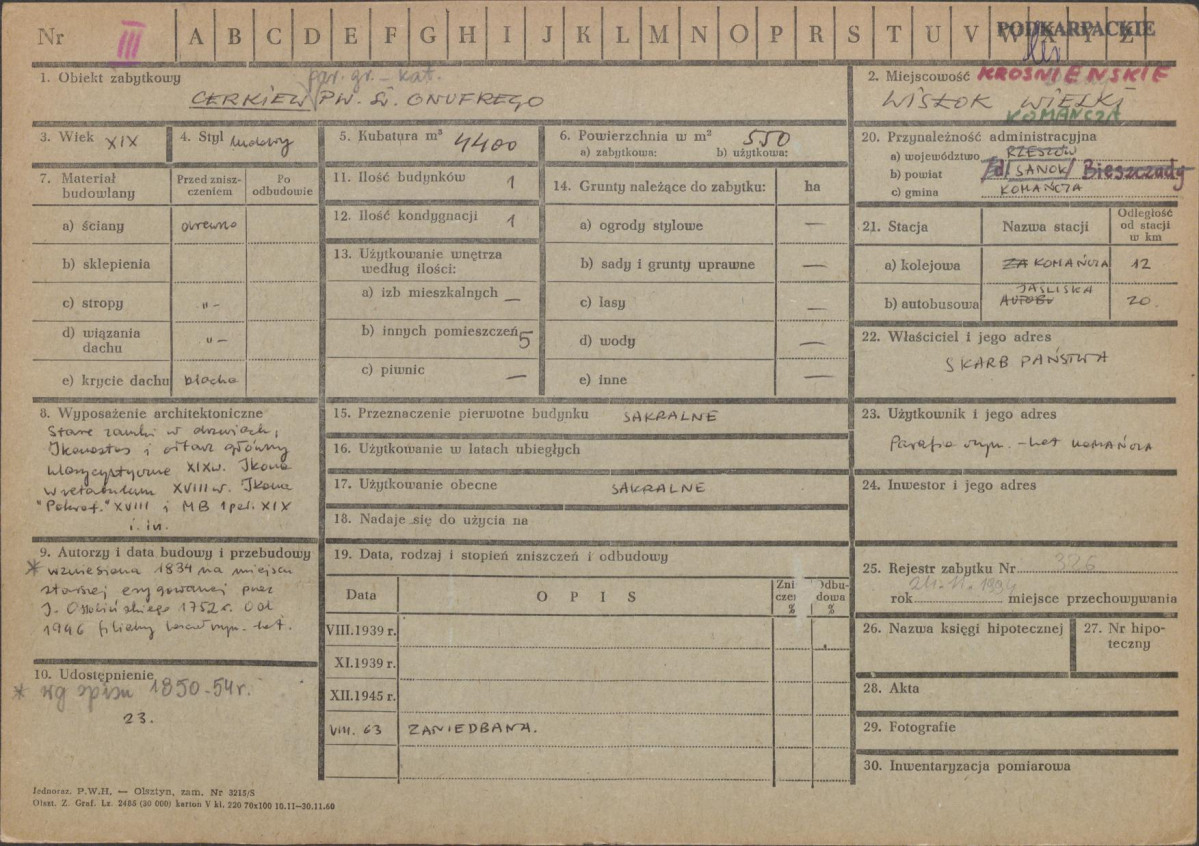 Nr III A B C D E F G H I J K L M N O P R S T U V W X Y Z
PODKARPACKIE
1. Obiekt zabytkowy
par. gr.-kat.
CERKIEW PW. Św. ONUFREGO
2. Miejscowość KROŚNIEŃSKIE
WISŁOK WIELKI
KOMAŃCZA
3. Wiek XIX
4. Styl ludowy
5. Kubatura m³ 4400
6. Powierzchnia w m² 550
a) zabytkowa: b) użytkowa:
7. Materiał budowlany
Przed znisz-
czeniem
Po
odbudowie
a) ściany drewno
b) sklepienia
c) stropy "-
d) wiązania
dachu "-
e) krycie dachu blacha
8. Wyposażenie architektoniczne
Stare zamki w drzwiach,
Ikonostas i ołtarz główny
klasycystyczne XIXw. Ikona
w retabulum XVIII w. Ikona
"Pokrow." XVIII i MB 1 poł. XIX
i in.
9. Autorzy i data budowy i przebudowy
* wzniesiona 1834 na miejscu
starszej erygowanej przez
J. Ossolińskiego 1752 r. Od
1946 filialny kościół rzym. kat.
10. Udostępnienie
* wg spisu 1850-54r.
23.
11. Ilość budynków 1
12. Ilość kondygnacji 1
13. Użytkowanie wnętrza
według ilości:
a) izb mieszkalnych —
b) innych pomieszczeń 5
c) piwnic —
14. Grunty należące do zabytku: ha
a) ogrody stylowe —
b) sady i grunty uprawne —
c) lasy —
d) wody —
e) inne —
15. Przeznaczenie pierwotne budynku SAKRALNE
16. Użytkowanie w latach ubiegłych
17. Użytkowanie obecne SAKRALNE
18. Nadaje się do użycia na
19. Data, rodzaj i stopień zniszczeń i odbudowy
Data OPIS
Zni
czeń
%
Odbu-
dowa
%
VIII.1939 r.
XI.1939 r.
XII.1945 r.
VIII. 63 ZANIEDBANA.
20. Przynależność administracyjna
a) województwo RZESZÓW
b) powiat SANOK Bieszczady
c) gmina KOMAŃCZA
21. Stacja
Nazwa stacji
Odległość
od stacji
w km
a) kolejowa ZA KOMAŃCZA 12
JAŚLISKA
b) autobusowa AUTOB 20.
22. Właściciel i jego adres
SKARB PAŃSTWA
23. Użytkownik i jego adres
Parafia rzym.-kat KOMAŃCZA
24. Inwestor i jego adres
25. Rejestr zabytku Nr 326
rok 24.11.1994 miejsce przechowywania
26. Nazwa księgi hipotecznej
27. Nr hipo-
teczny
28. Akta
29. Fotografie
30. Inwentaryzacja pomiarowa
Jednoraz. P.W.H. — Olsztyn, zam. Nr 3215/S
Olszt. Z. Graf. Lz. 2485 (30 000) karton V kl. 220 70x100 10.11—30.11.60